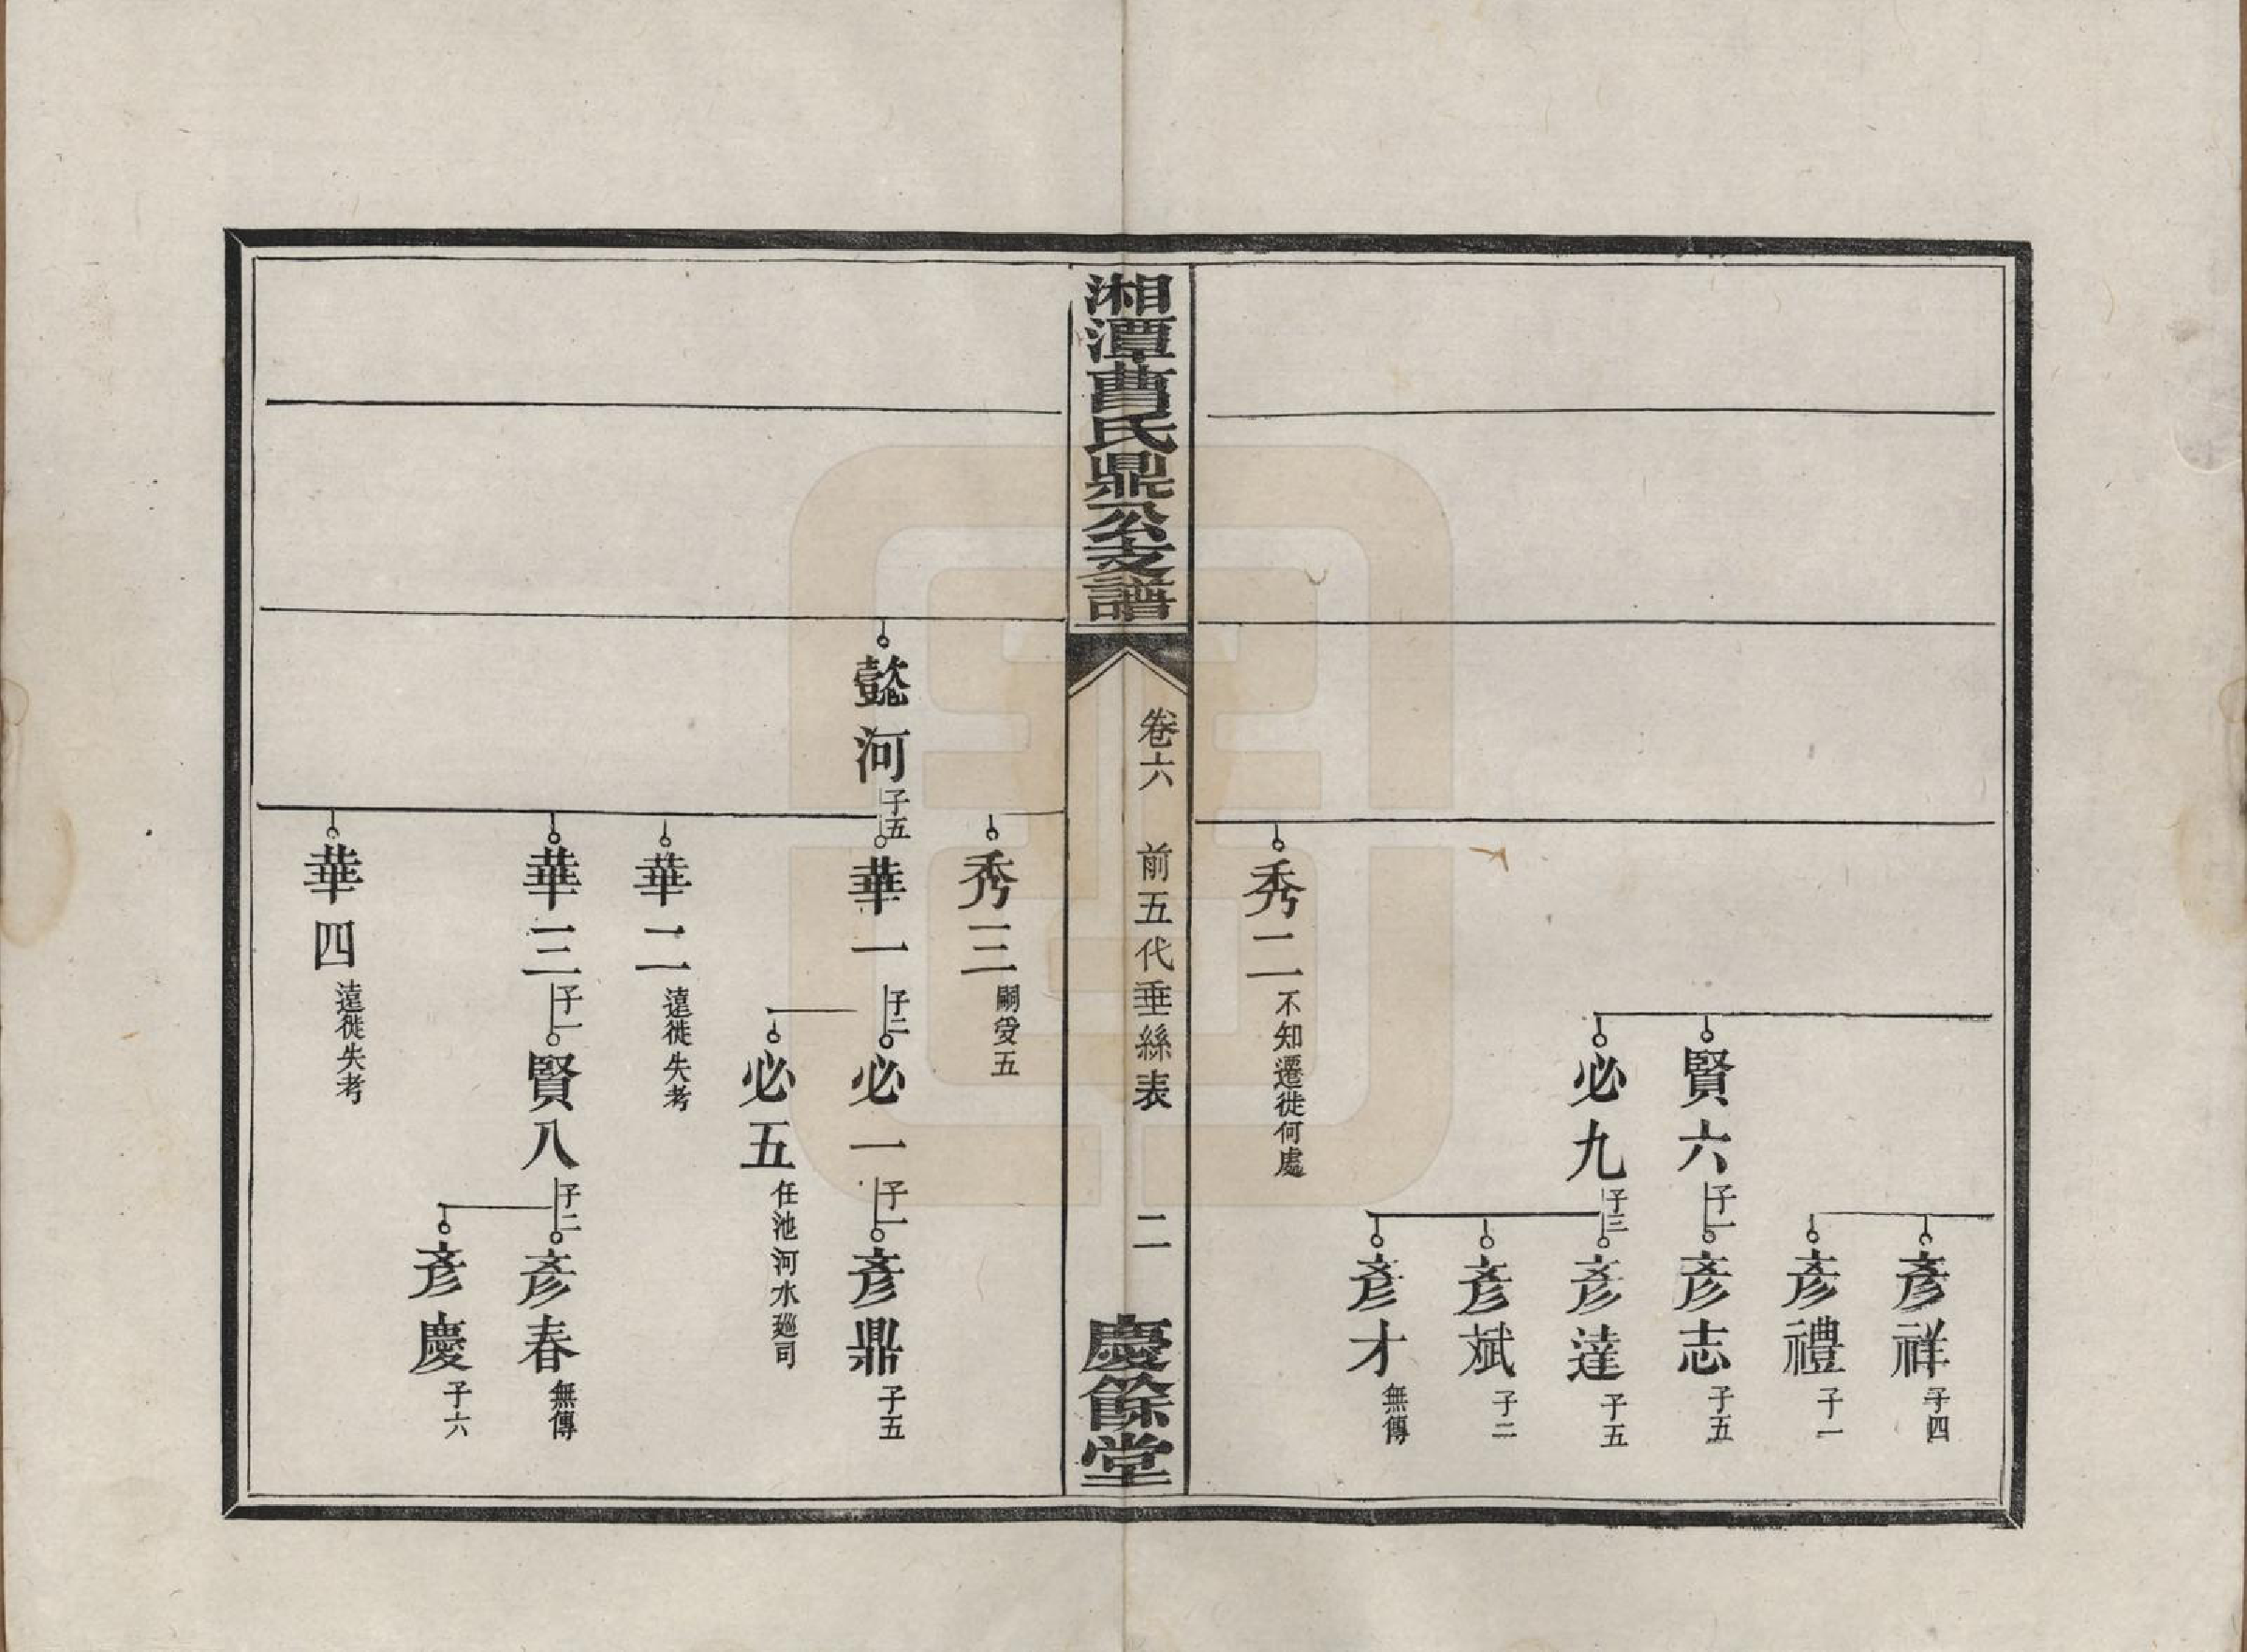 彥祥 子四
彥禮 子一
賢六 子一
彥志 子五
必九 子三
彥達 子五
彥斌 子二
彥才 無傳
秀二 不知遷徙何處
湘潭曹氏鼎公支譜
卷六 前五代垂絲表 二
慶餘堂
秀三 嗣受五
懿河 子五
華一 子二
必一 子一
彥鼎 子五
必五 任池河水廵司
華二 遠徙失考
華三 子一
賢八 子二
彥春 無傳
彥慶 子六
華四 遠徙失考